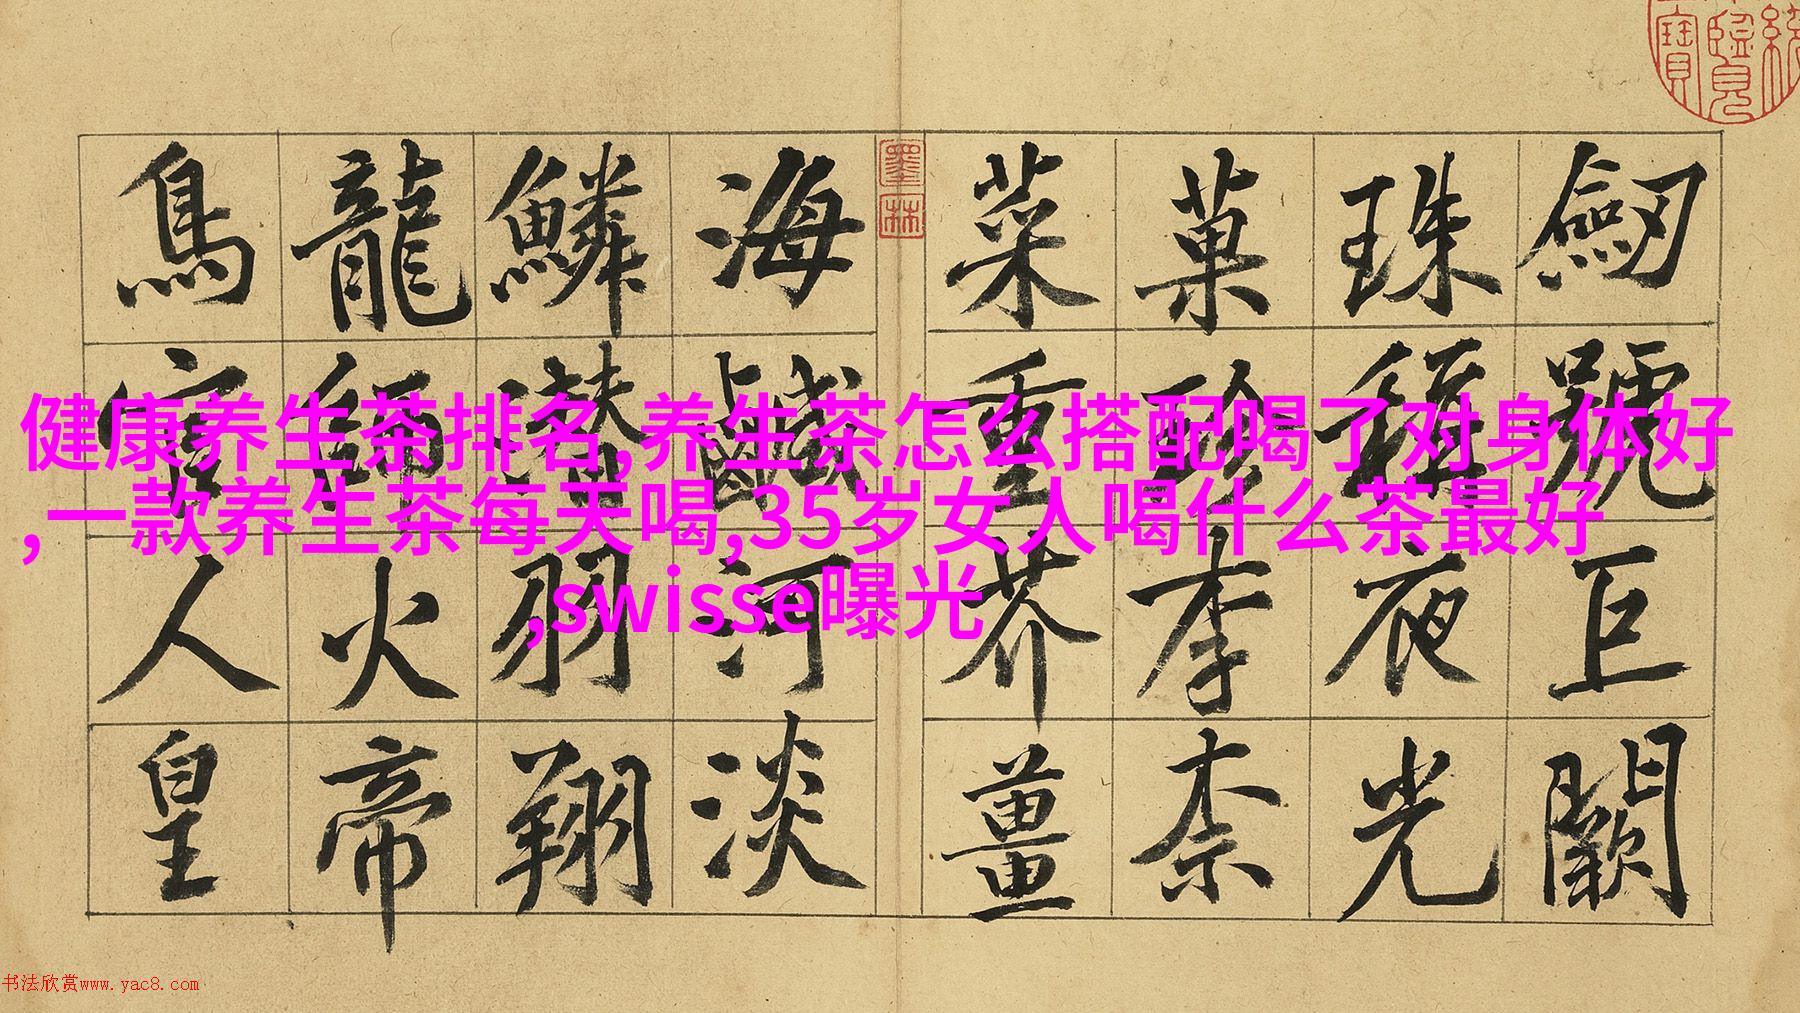 劒號巨闕
珠稱夜光
菓珍李柰
菜重芥薑
海鹹河淡
鱗潛羽翔
龍師火帝
鳥官人皇
墨林
健康养生茶排名,养生茶怎么搭配喝了对身体好
,一款养生茶每天喝,35岁女人喝什么茶最好
,swisse曝光
书法欣赏www.yac8.com